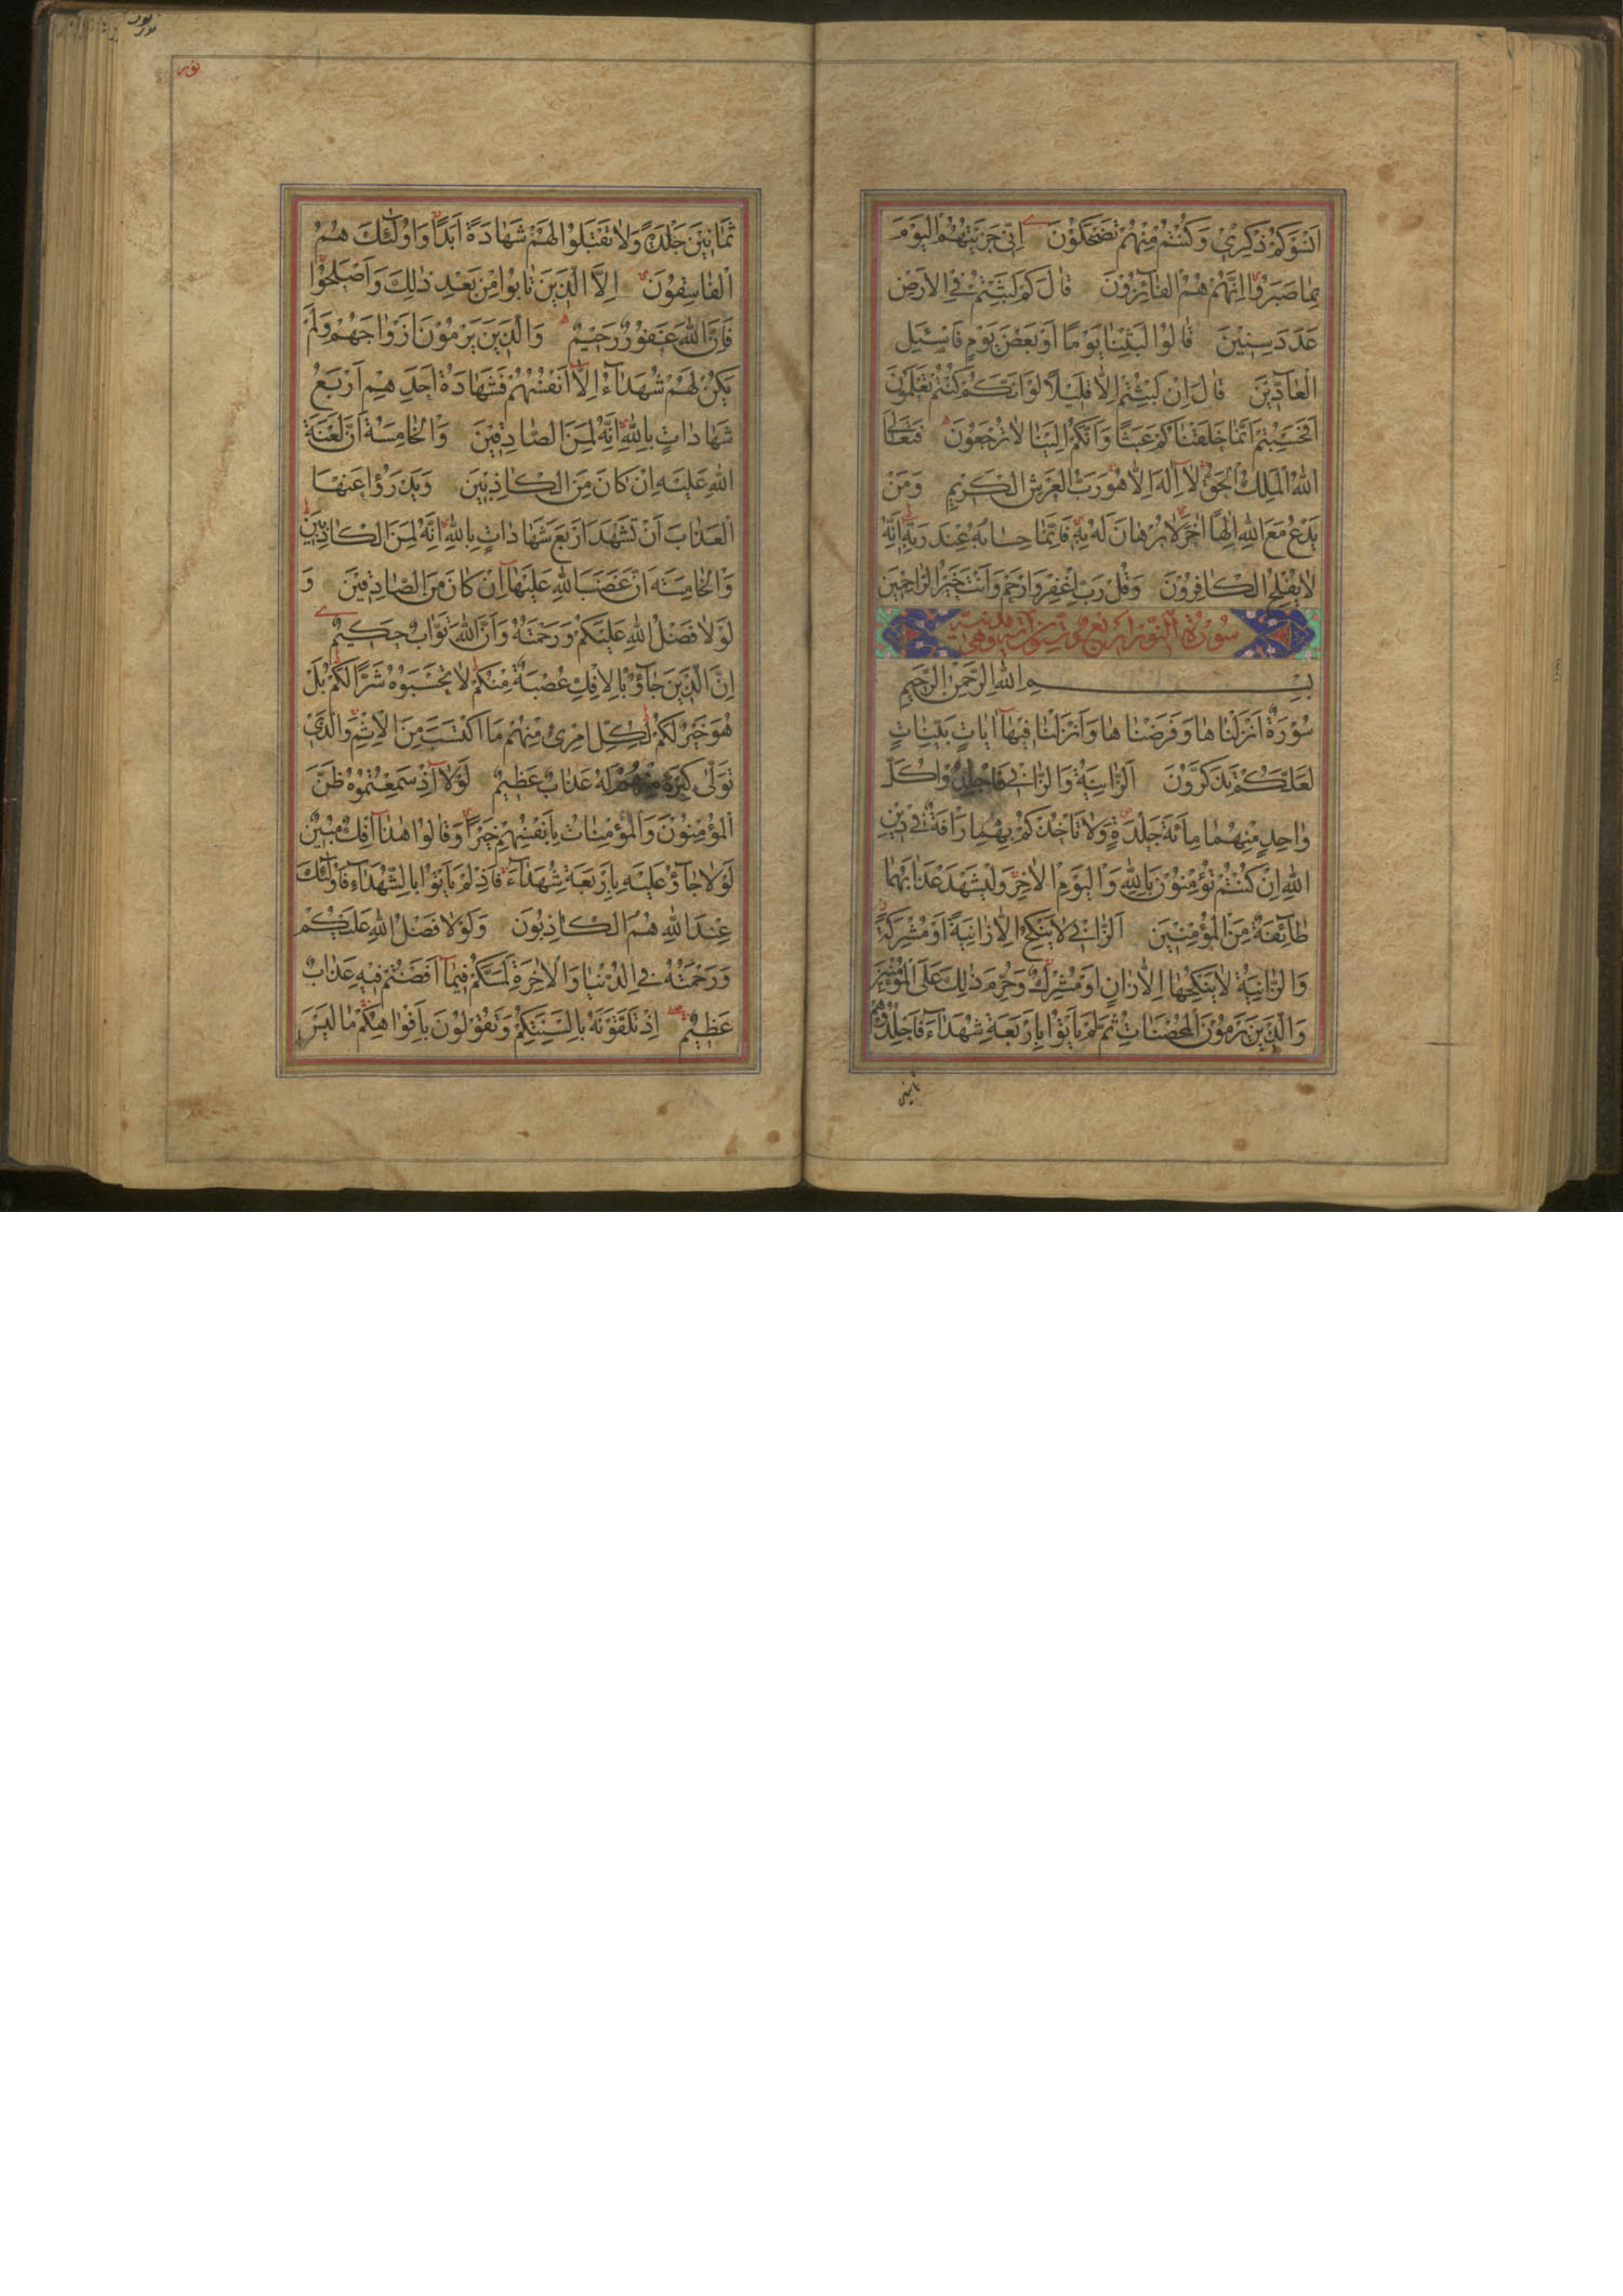 اَنْسَوْكُمْ ذِكْرِي وَكُنْتُمْ مِنْهُمْ تَضْحَكُوْنَ اِنِّي جَزَيْتُهُمُ الْيَوْمَ
بِمَا صَبَرُوْا اِنَّهُمْ هُمُ الْفَائِزُوْنَ قَالَ كَمْ لَبِثْتُمْ فِي الْاَرْضِ
عَدَدَ سِنِيْنَ قَالُوا لَبِثْنَا يَوْمًا اَوْ بَعْضَ يَوْمٍ فَاسْئَلِ
الْعَادِّيْنَ قَالَ اِنْ لَبِثْتُمْ اِلَّا قَلِيْلًا لَوْ اَنَّكُمْ كُنْتُمْ تَعْلَمُوْنَ
اَفَحَسِبْتُمْ اَنَّمَا خَلَقْنَاكُمْ عَبَثًا وَاَنَّكُمْ اِلَيْنَا لَا تُرْجَعُوْنَ فَتَعَالَى
اللّٰهُ الْمَلِكُ الْحَقُّ لَا اِلٰهَ اِلَّا هُوَ رَبُّ الْعَرْشِ الْكَرِيْمِ وَمَنْ
يَدْعُ مَعَ اللّٰهِ اِلٰهًا اٰخَرَ لَا بُرْهَانَ لَهُ بِهِ فَاِنَّمَا حِسَابُهُ عِنْدَ رَبِّهِ اِنَّهُ
لَا يُفْلِحُ الْكَافِرُوْنَ وَقُلْ رَبِّ اغْفِرْ وَارْحَمْ وَاَنْتَ خَيْرُ الرَّاحِمِيْنَ
سُوْرَةُ النُّوْرِ اربع وستون اية مدنية وهي
بِسْمِ اللّٰهِ الرَّحْمٰنِ الرَّحِيْمِ
سُوْرَةٌ اَنْزَلْنَاهَا وَفَرَضْنَاهَا وَاَنْزَلْنَا فِيْهَا اٰيَاتٍ بَيِّنَاتٍ
لَعَلَّكُمْ تَذَكَّرُوْنَ اَلزَّانِيَةُ وَالزَّانِي فَاجْلِدُوْا كُلَّ
وَاحِدٍ مِنْهُمَا مِائَةَ جَلْدَةٍ وَلَا تَأْخُذْكُمْ بِهِمَا رَأْفَةٌ فِي دِيْنِ
اللّٰهِ اِنْ كُنْتُمْ تُؤْمِنُوْنَ بِاللّٰهِ وَالْيَوْمِ الْاٰخِرِ وَلْيَشْهَدْ عَذَابَهُمَا
طَائِفَةٌ مِنَ الْمُؤْمِنِيْنَ اَلزَّانِي لَا يَنْكِحُ اِلَّا زَانِيَةً اَوْ مُشْرِكَةً
وَالزَّانِيَةُ لَا يَنْكِحُهَا اِلَّا زَانٍ اَوْ مُشْرِكٌ وَحُرِّمَ ذٰلِكَ عَلَى الْمُؤْمِنِيْنَ
وَالَّذِيْنَ يَرْمُوْنَ الْمُحْصَنَاتِ ثُمَّ لَمْ يَأْتُوْا بِاَرْبَعَةِ شُهَدَاءَ فَاجْلِدُوْهُمْ
ثمانين
نور
نور
ثَمَانِيْنَ جَلْدَةً وَلَا تَقْبَلُوْا لَهُمْ شَهَادَةً اَبَدًا وَاُولٰئِكَ هُمُ
الْفَاسِقُوْنَ اِلَّا الَّذِيْنَ تَابُوْا مِنْ بَعْدِ ذٰلِكَ وَاَصْلَحُوْا
فَاِنَّ اللّٰهَ غَفُوْرٌ رَحِيْمٌ وَالَّذِيْنَ يَرْمُوْنَ اَزْوَاجَهُمْ وَلَمْ
يَكُنْ لَهُمْ شُهَدَاءُ اِلَّا اَنْفُسُهُمْ فَشَهَادَةُ اَحَدِهِمْ اَرْبَعُ
شَهَادَاتٍ بِاللّٰهِ اِنَّهُ لَمِنَ الصَّادِقِيْنَ وَالْخَامِسَةُ اَنَّ لَعْنَةَ
اللّٰهِ عَلَيْهِ اِنْ كَانَ مِنَ الْكَاذِبِيْنَ وَيَدْرَؤُا عَنْهَا
الْعَذَابَ اَنْ تَشْهَدَ اَرْبَعَ شَهَادَاتٍ بِاللّٰهِ اِنَّهُ لَمِنَ الْكَاذِبِيْنَ
وَالْخَامِسَةَ اَنَّ غَضَبَ اللّٰهِ عَلَيْهَا اِنْ كَانَ مِنَ الصَّادِقِيْنَ وَ
لَوْلَا فَضْلُ اللّٰهِ عَلَيْكُمْ وَرَحْمَتُهُ وَاَنَّ اللّٰهَ تَوَّابٌ حَكِيْمٌ
اِنَّ الَّذِيْنَ جَاؤُ بِالْاِفْكِ عُصْبَةٌ مِنْكُمْ لَا تَحْسَبُوْهُ شَرًّا لَكُمْ بَلْ
هُوَ خَيْرٌ لَكُمْ لِكُلِّ امْرِئٍ مِنْهُمْ مَا اكْتَسَبَ مِنَ الْاِثْمِ وَالَّذِي
تَوَلّٰى كِبْرَهُ مِنْهُمْ لَهُ عَذَابٌ عَظِيْمٌ لَوْلَا اِذْ سَمِعْتُمُوْهُ ظَنَّ
الْمُؤْمِنُوْنَ وَالْمُؤْمِنَاتُ بِاَنْفُسِهِمْ خَيْرًا وَقَالُوْا هٰذَا اِفْكٌ مُبِيْنٌ
لَوْلَا جَاؤُ عَلَيْهِ بِاَرْبَعَةِ شُهَدَاءَ فَاِذْ لَمْ يَأْتُوْا بِالشُّهَدَاءِ فَاُولٰئِكَ
عِنْدَ اللّٰهِ هُمُ الْكَاذِبُوْنَ وَلَوْلَا فَضْلُ اللّٰهِ عَلَيْكُمْ
وَرَحْمَتُهُ فِي الدُّنْيَا وَالْاٰخِرَةِ لَمَسَّكُمْ فِيْمَا اَفَضْتُمْ فِيْهِ عَذَابٌ
عَظِيْمٌ اِذْ تَلَقَّوْنَهُ بِاَلْسِنَتِكُمْ وَتَقُوْلُوْنَ بِاَفْوَاهِكُمْ مَا لَيْسَ